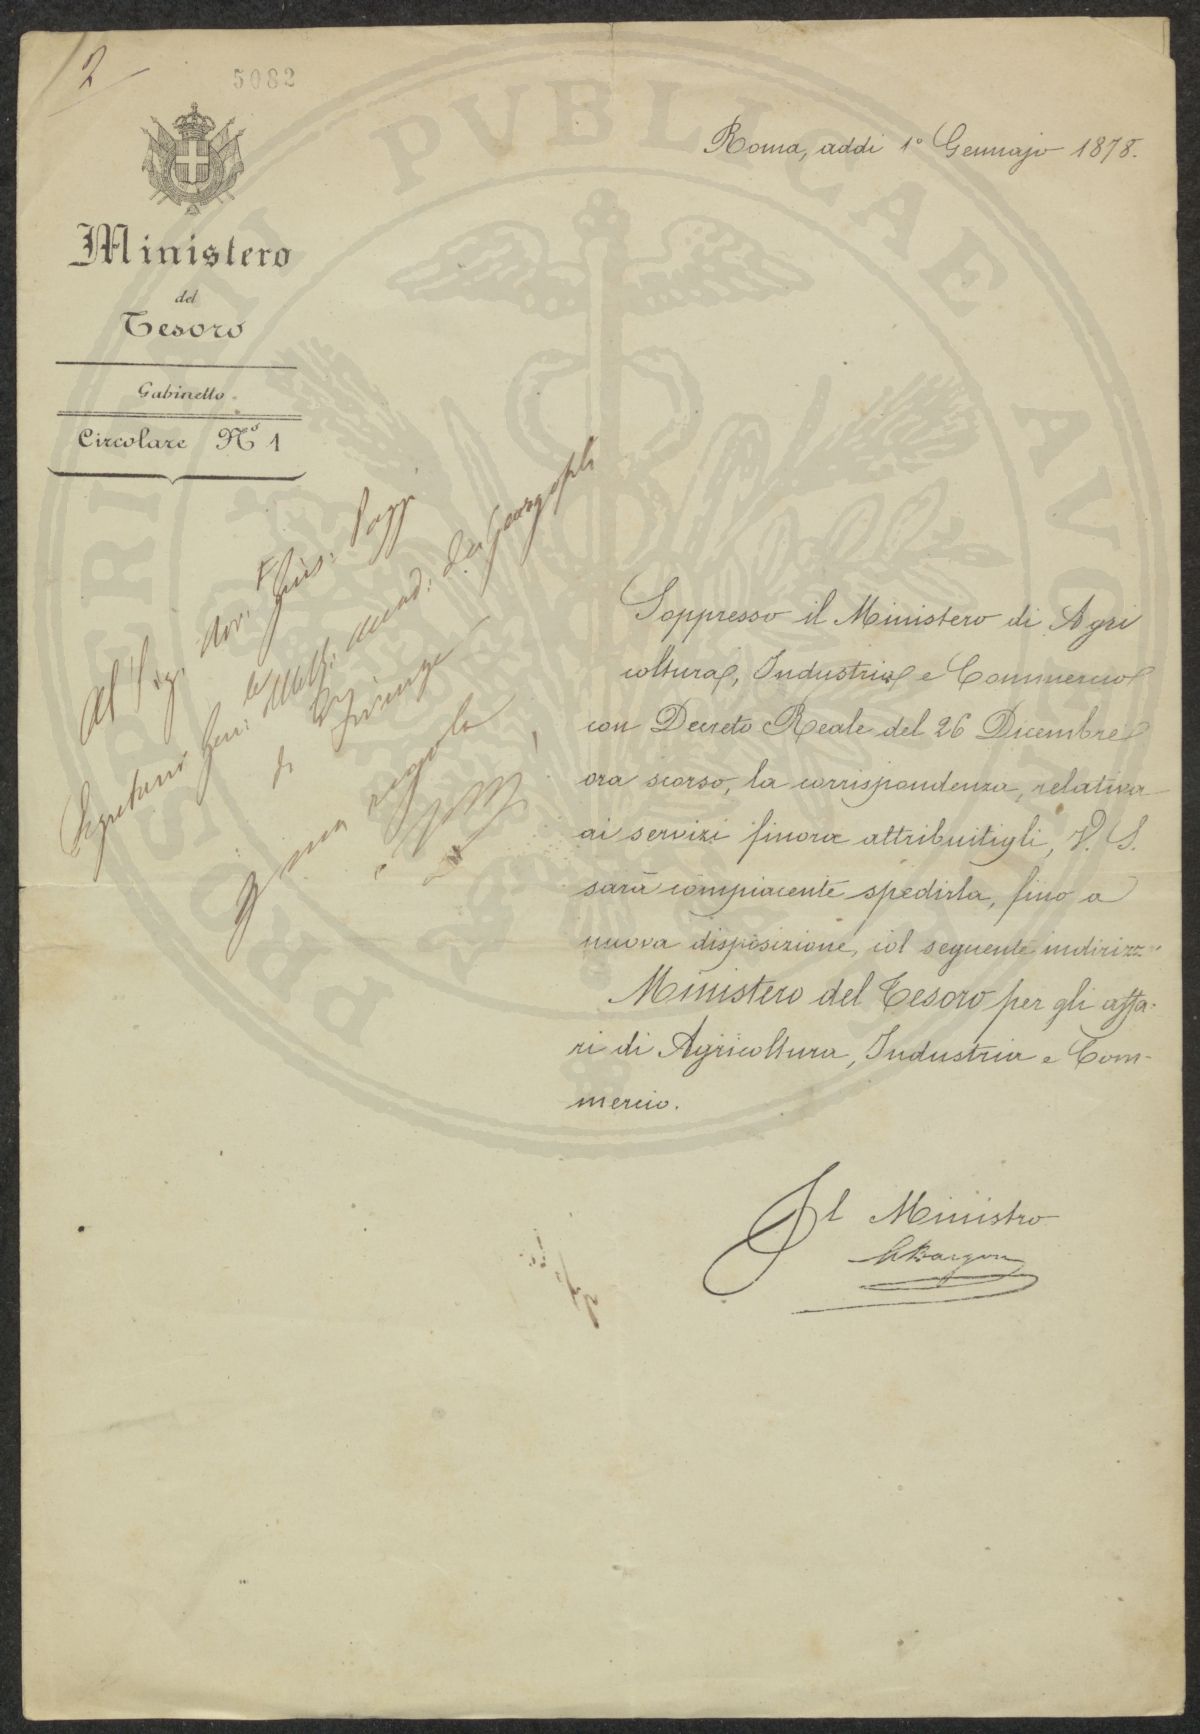 2
5082
Roma, addi 1° Gennajo 1878.
Ministero
del
Tesoro
Gabinetto
Circolare No 1
Al Sig. Avv. Gius. Poggi
Segretario Gen: della R. Accad: dei Georgofili
di Firenze
per sua regola
Soppresso il Ministero di Agri
coltura, Industria e Commercio
con Decreto Reale del 26 Dicembre
ora scorso, la corrispondenza, relativa
ai servizi finora attribuitigli, V. S.
sarà compiacente spedirla, fino a
nuova disposizione, col seguente indirizzo
Ministero del Tesoro per gli affa-
ri di Agricoltura, Industria e Com-
mercio.
Il Ministro
Bargoni
PROSPERITATI PVBLICAE AVGENDAE